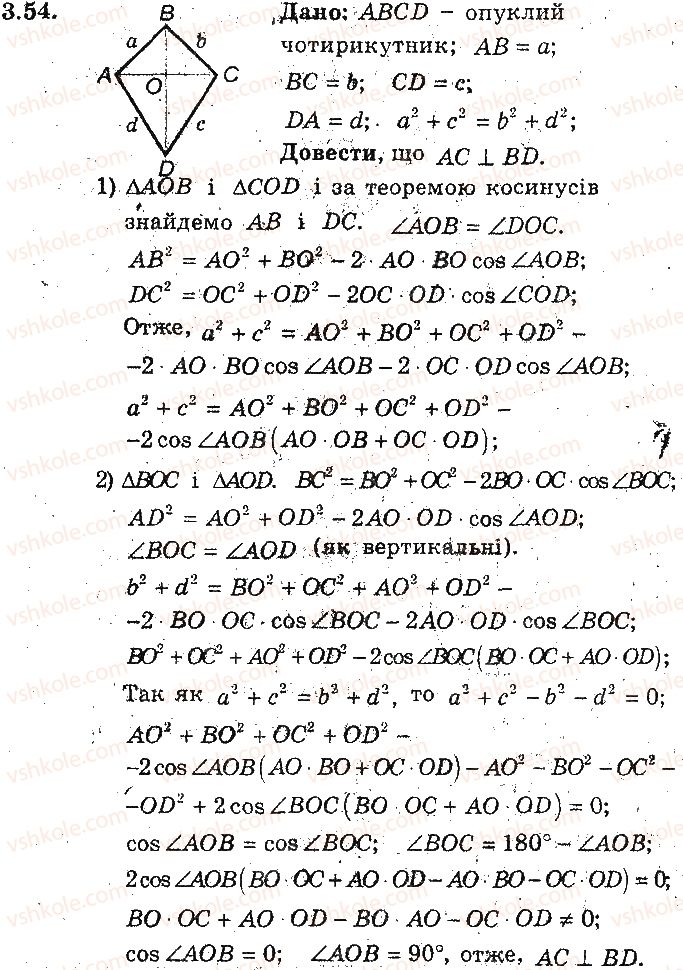 3.54.
B
a b
A C
O
d c
D
Дано: ABCD – опуклий
чотирикутник; AB = a;
BC = b; CD = c;
DA = d; a² + c² = b² + d²;
Довести, що AC ⊥ BD.
1) ΔAOB і ΔCOD і за теоремою косинусів
знайдемо AB і DC. ∠AOB = ∠DOC.
AB² = AO² + BO² – 2 · AO · BO cos ∠AOB;
DC² = OC² + OD² – 2OC · OD · cos ∠COD;
Отже, a² + c² = AO² + BO² + OC² + OD² –
–2 · AO · BO cos ∠AOB – 2 · OC · OD cos ∠AOB;
a² + c² = AO² + BO² + OC² + OD² –
–2 cos ∠AOB(AO · OB + OC · OD);
2) ΔBOC і ΔAOD. BC² = BO² + OC² – 2BO · OC · cos ∠BOC;
AD² = AO² + OD² – 2AO · OD · cos ∠AOD;
∠BOC = ∠AOD (як вертикальні).
b² + d² = BO² + OC² + AO² + OD² –
–2 · BO · OC · cos ∠BOC – 2AO · OD · cos ∠BOC;
BO² + OC² + AO² + OD² – 2cos ∠BOC(BO · OC + AO · OD);
Так як a² + c² = b² + d², то a² + c² – b² – d² = 0;
AO² + BO² + OC² + OD² –
–2 cos ∠AOB(AO · BO + OC · OD) – AO² – BO² – OC² –
–OD² + 2 cos ∠BOC(BO · OC + AO · OD) = 0;
cos ∠AOB = cos ∠BOC; ∠BOC = 180° – ∠AOB;
2cos ∠AOB(BO · OC + AO · OD – AO · BO – OC · OD) = 0;
BO · OC + AO · OD – BO · AO – OC · OD ≠ 0;
cos ∠AOB = 0; ∠AOB = 90°, отже, AC ⊥ BD.